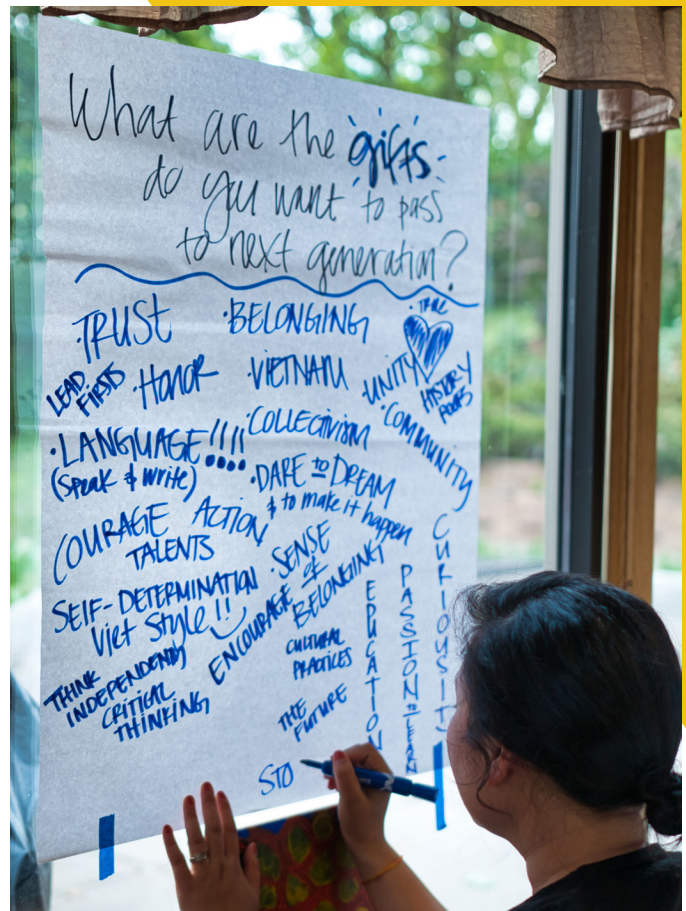 What are the gifts
do you want to pass
to next generation?
·TRUST
·BELONGING
·TRUE
LEAD
FIRSTS
·HONOR
·VIETNAM
·UNITY
HISTORY
ROOTS
·LANGUAGE!!!!
(SPEAK & WRITE)
·COLLECTIVISM
·COMMUNITY
·DARE to DREAM
& to make it happen
COURAGE
ACTION
TALENTS
·SENSE
OF
BELONGING
SELF-DETERMINATION
Viet Style!!
ENCOURAGE
THINK
INDEPENDENTLY
CRITICAL
THINKING
CULTURAL
PRACTICES
THE
FUTURE
EDUCATION
PASSION to LEARN
CURIOUSITY
STO